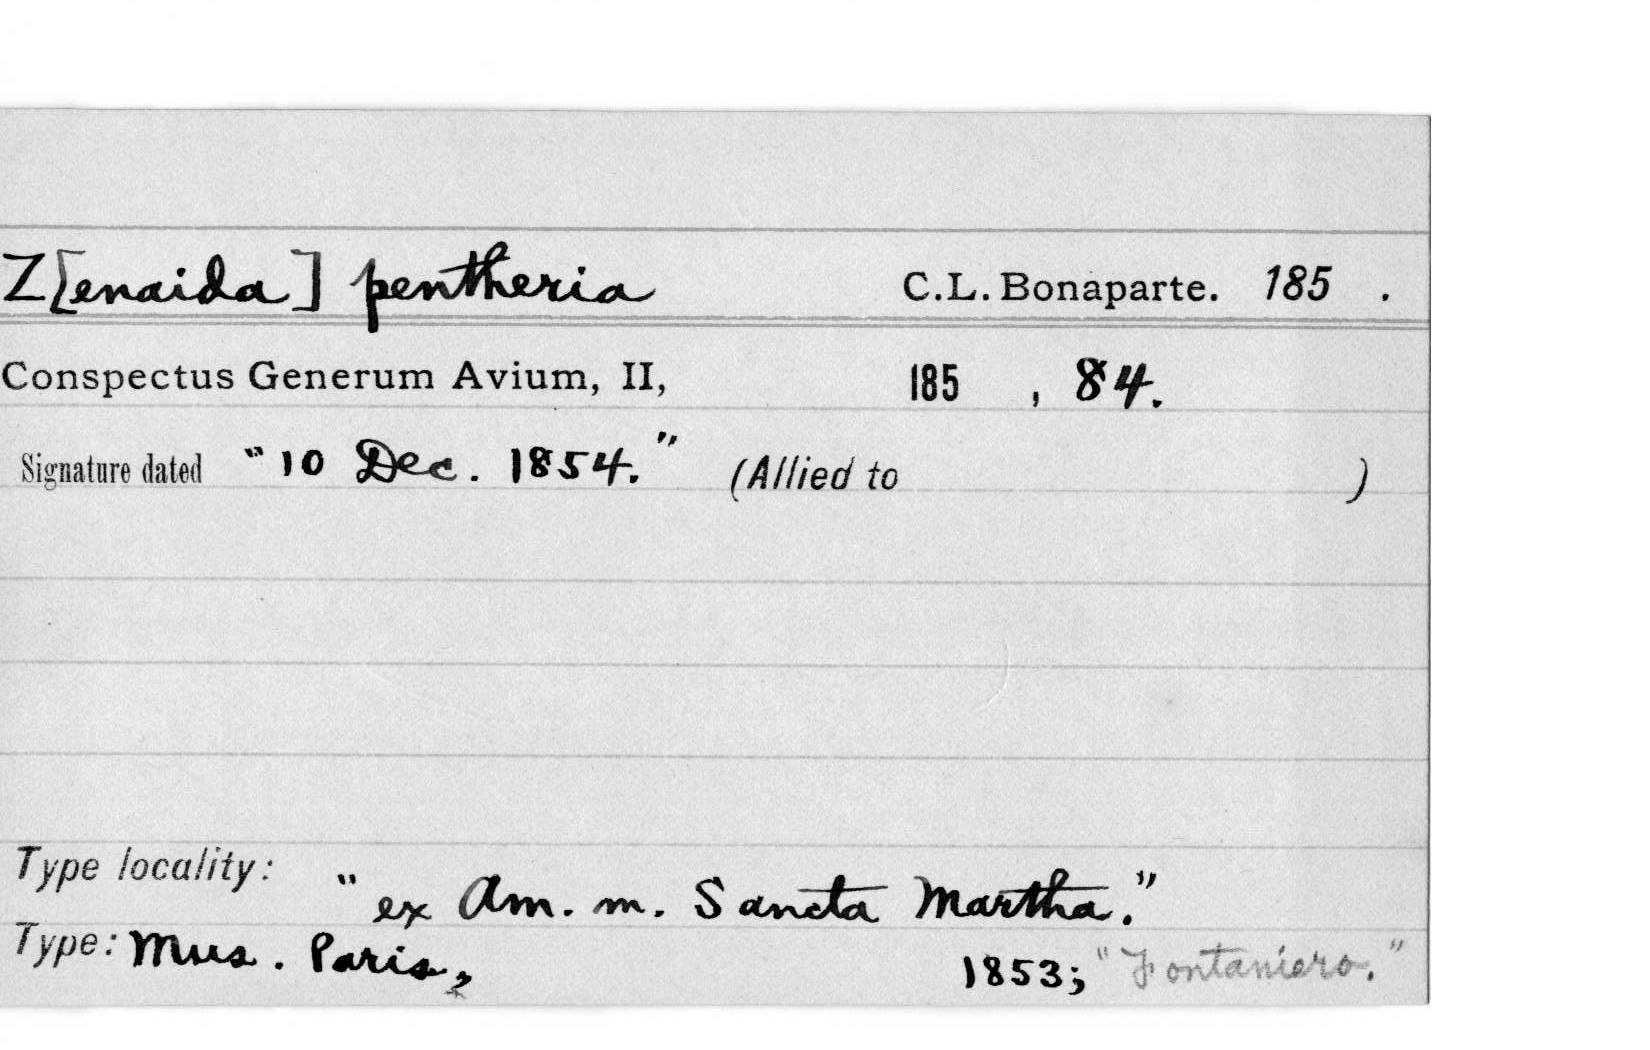 Z[enaida] pentheria C.L. Bonaparte. 185 .
Conspectus Generum Avium, II, 185 , 84.
Signature dated "10 Dec. 1854." (Allied to )
Type locality: "ex Am. m. Sancta Martha."
Type: Mus. Paris, 1853; "Fontaniero."